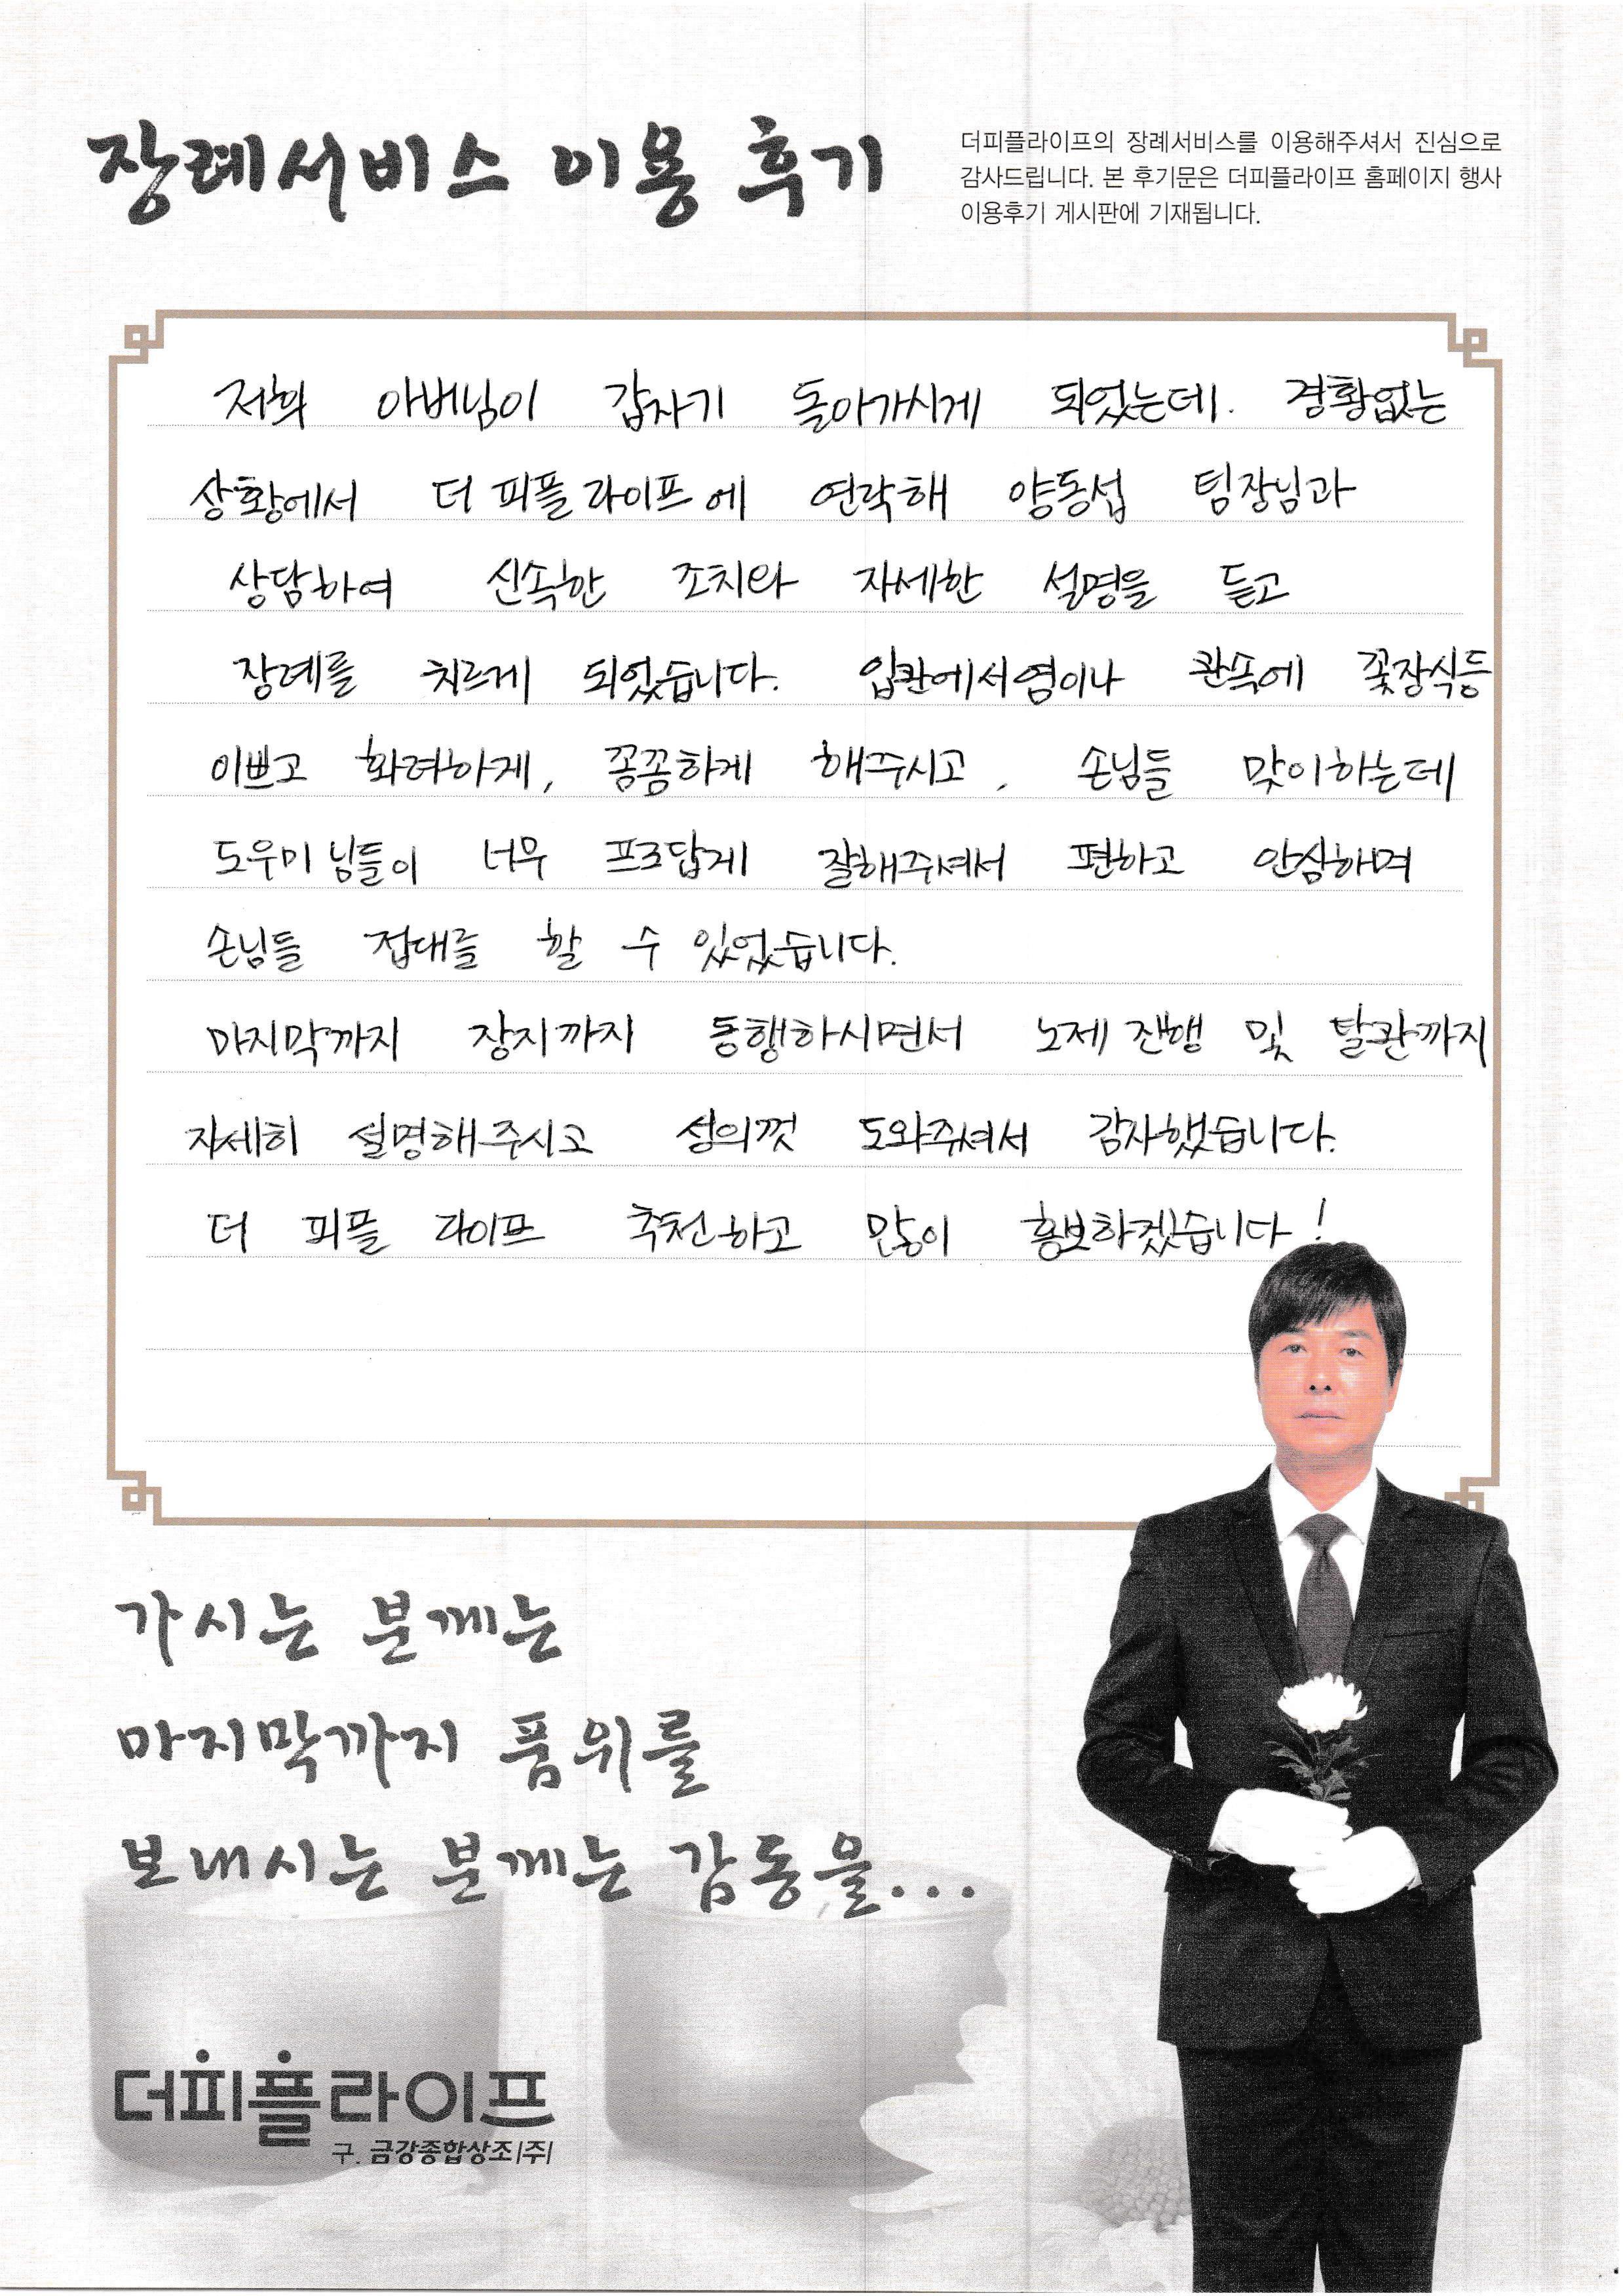 장례서비스 이용 후기
더피플라이프의 장례서비스를 이용해주셔서 진심으로
감사드립니다. 본 후기문은 더피플라이프 홈페이지 행사
이용후기 게시판에 기재됩니다.
저희 아버님이 갑자기 돌아가시게 되었는데. 경황없는
상황에서 더 피플 라이프에 연락해 양동섭 팀장님과
상담하여 신속한 조치와 자세한 설명을 듣고
장례를 치르게 되었습니다. 입관에서염이나 관속에 꽃장식등
이쁘고 화려하게, 꼼꼼하게 해주시고, 손님들 맞이하는데
도우미님들이 너무 프로답게 잘해주셔서 편하고 안심하며
손님들 접대를 할 수 있었습니다.
마지막까지 장지까지 동행하시면서 노제 진행 및 탈관까지
자세히 설명해주시고 성의껏 도와주셔서 감사했습니다.
더 피플 라이프 추천하고 많이 홍보하겠습니다!
가시는 분께는
마지막까지 품위를
보내시는 분께는 감동을...
더피플라이프
구. 금강종합상조|주|